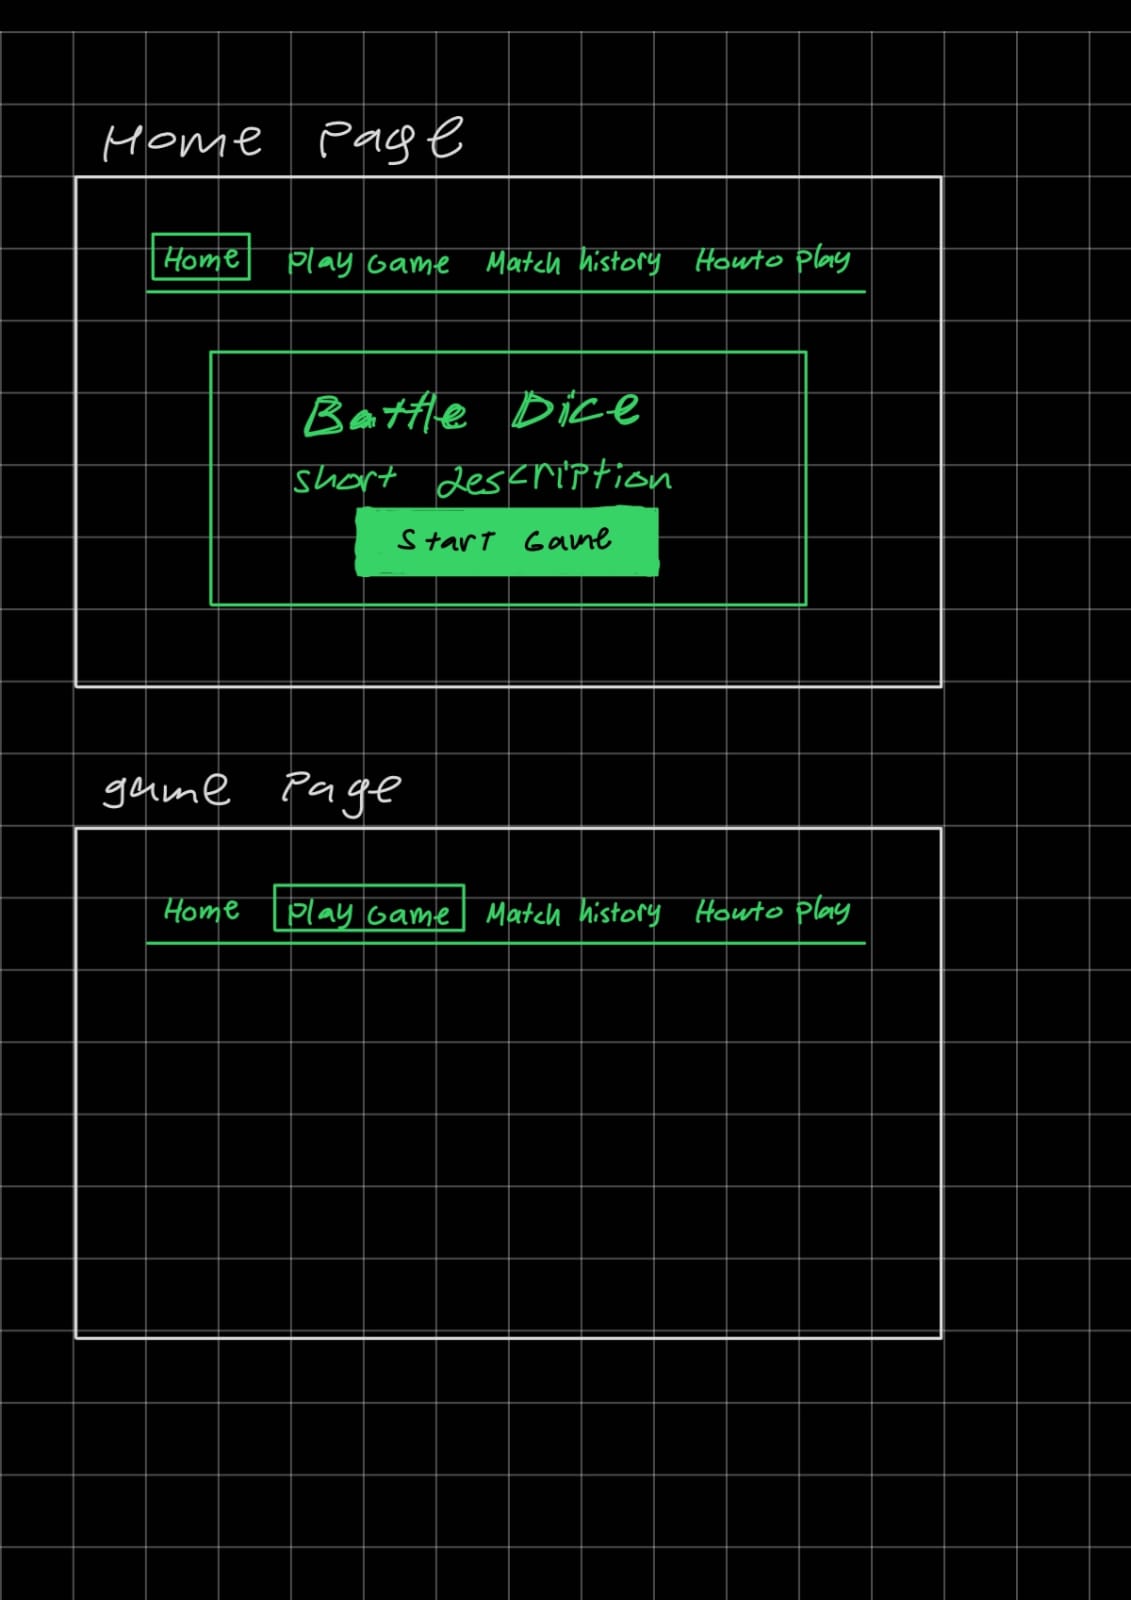 Home Page
Home Play Game Match history How to Play
Battle Dice
short description
Start Game
game Page
Home Play Game Match history How to Play